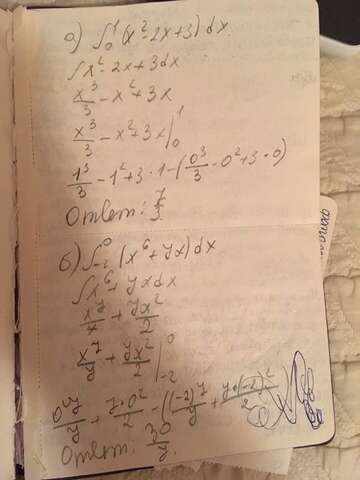 а) ∫₀¹ (x²-2x+3) dx
∫x²-2x+3dx
x³/3 - x²+3x
x³/3 - x²+3x |₀¹
1³/3 - 1²+3·1-(0³/3 - 0²+3·0)
Ответ: 7/3
б) ∫₋₂⁰ (x⁶+yx)dx
∫x⁶+yxdx
x⁷/7 + yx²/2
x⁷/7 + yx²/2 |₋₂⁰
0⁷/7 + y·0²/2 - ((-2)⁷/7 + y·(-2)²/2)
Ответ: